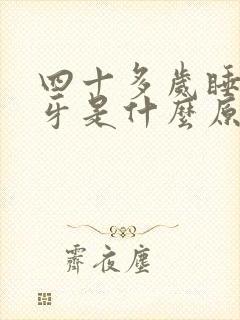 四十多歲睡
牙是什麼原
霽夜塵